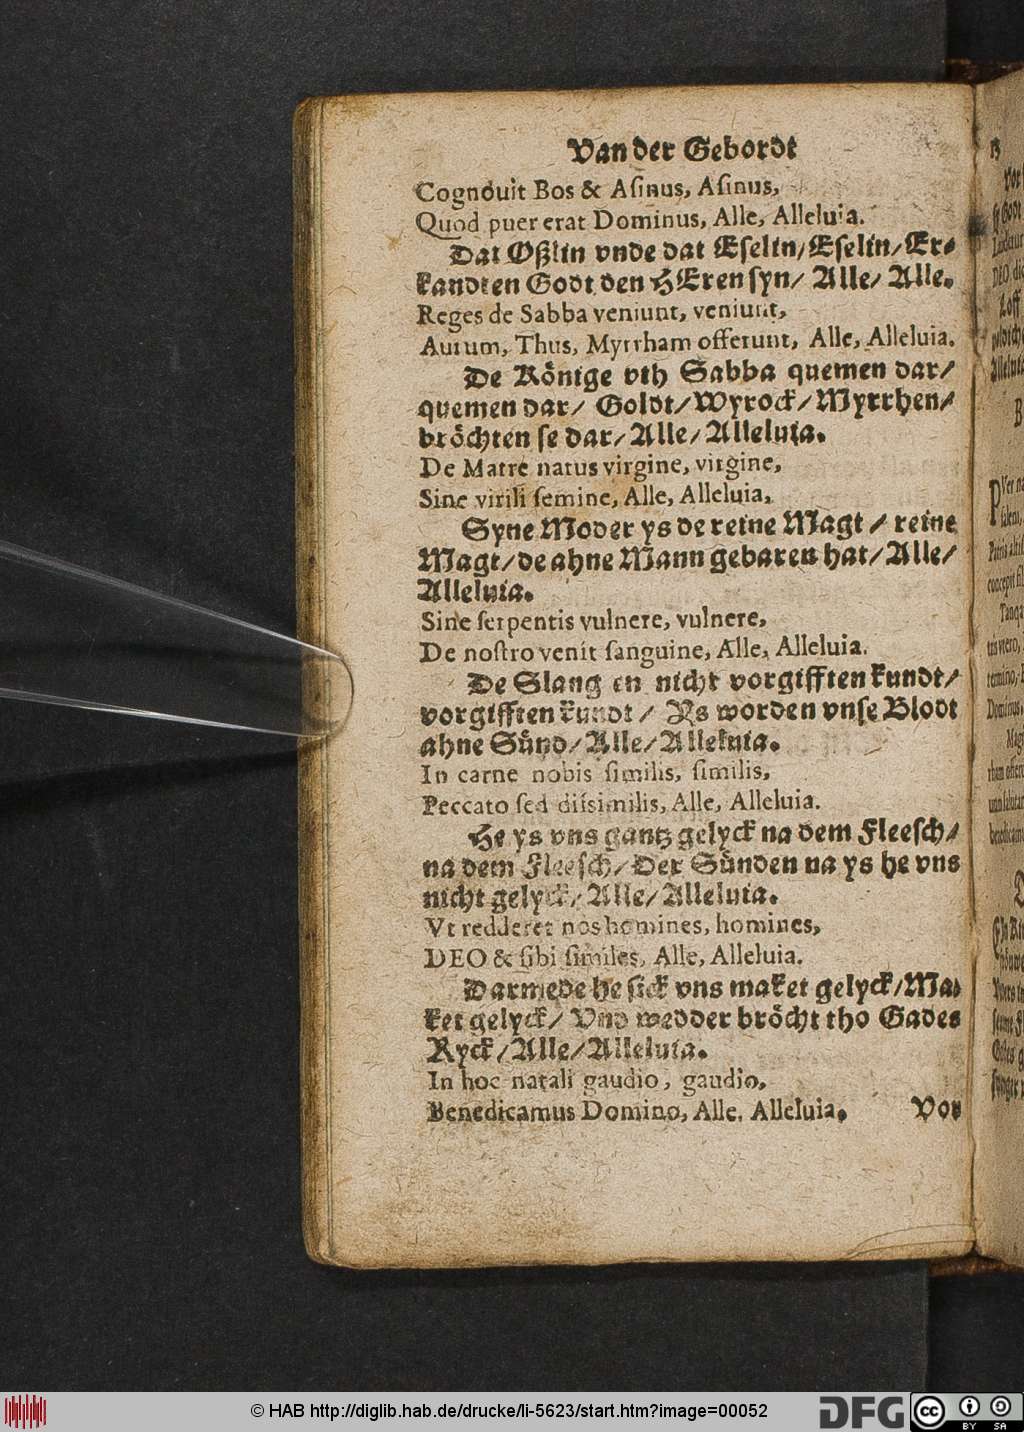 Van der Gebordt
Cognouit Bos & Aſinus, Aſinus,
Quod puer erat Dominus, Alle, Alleluia.
Dat Oßlin vnde dat Eſelin/ Eſelin/ Er-
kandten Godt den HEren ſyn/ Alle/ Alle.
Reges de Sabba veniunt, veniunt,
Aurum, Thus, Myrrham offerunt, Alle, Alleluia.
De Könige vth Sabba quemen dar/
quemen dar/ Goldt/ Wyrock/ Myrrhen/
bröchten ſe dar/ Alle/ Alleluia.
De Matre natus virgine, virgine,
Sine virili ſemine, Alle, Alleluia,
Syne Moder ys de reine Magt / reine
Magt/ de ahne Mann gebaren hat/ Alle/
Alleluia.
Sine ſerpentis vulnere, vulnere,
De noſtro venit ſanguine, Alle, Alleluia.
De Slang en nicht vorgifften kundt/
vorgifften kundt / Ys worden vnſe Blodt
ahne Sünd/ Alle/ Alleluia.
In carne nobis ſimilis, ſimilis,
Peccato ſed diſsimilis, Alle, Alleluia.
He ys vns gantz gelyck na dem Fleeſch/
na dem Fleeſch/ Der Sünden na ys he vns
nicht gelyck/ Alle/ Alleluia.
Vt redderet nos homines, homines,
DEO & ſibi ſimiles, Alle, Alleluia.
Darmede he ſick vns maket gelyck/ Ma-
ket gelyck/ Vnd wedder bröcht tho Gades
Ryck/ Alle/ Alleluia.
In hoc natali gaudio, gaudio,
Benedicamus Domino, Alle, Alleluia.
Vor
© HAB http://diglib.hab.de/drucke/li-5623/start.htm?image=00052
DFG
cc
BY SA